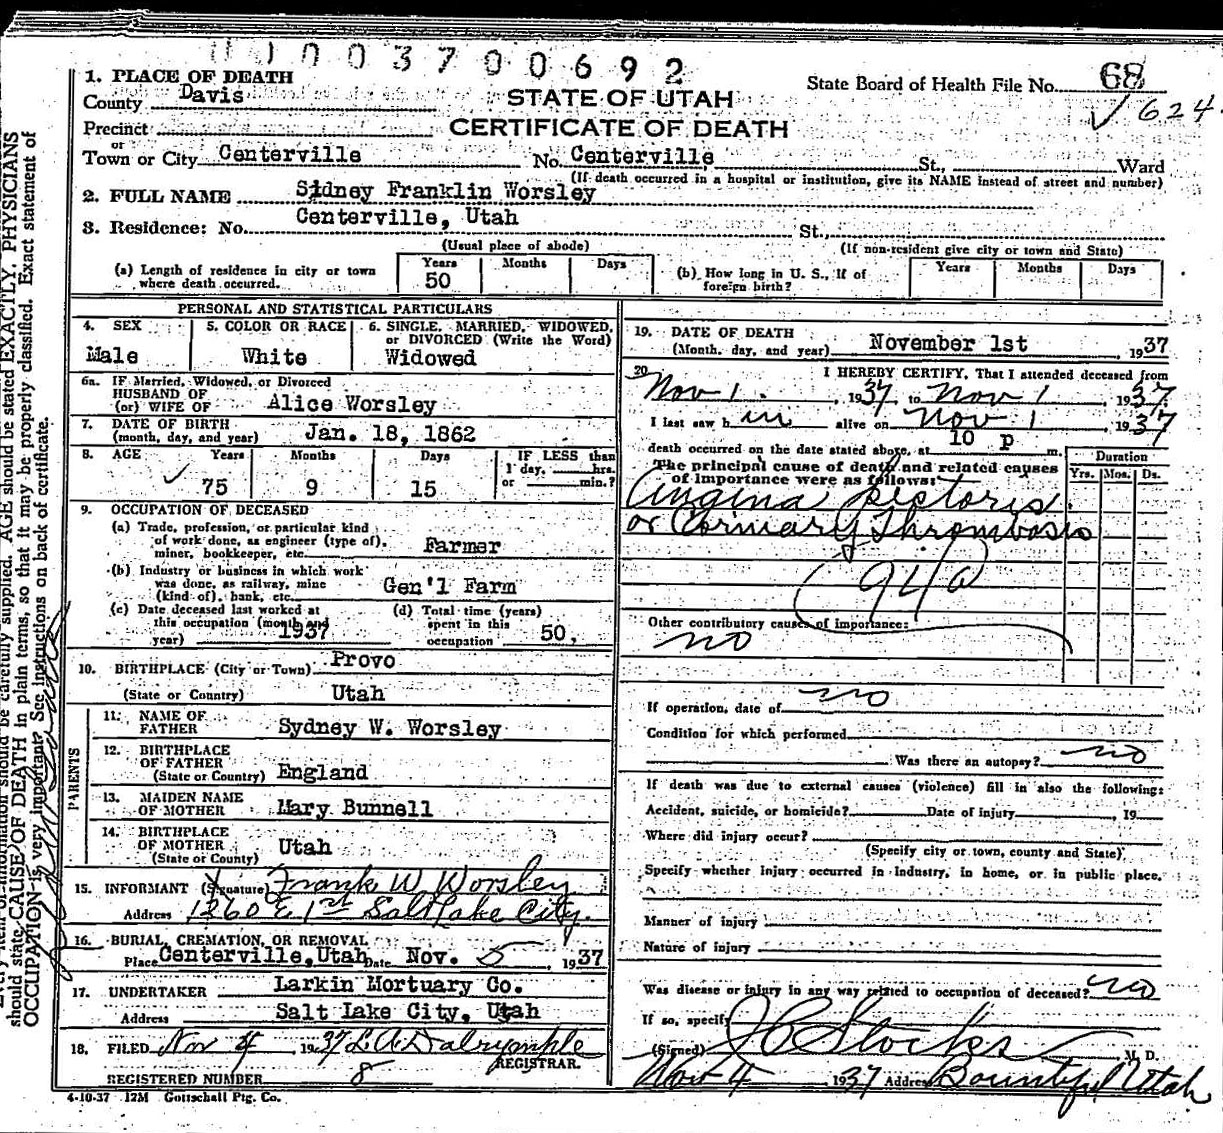 0 1 0 0 3 7 0 0 6 9 2
1. PLACE OF DEATH
County Davis
STATE OF UTAH
CERTIFICATE OF DEATH
State Board of Health File No. 68
✓ 624
Precinct
or
Town or City Centerville No. Centerville, St., Ward
(If death occurred in a hospital or institution, give its NAME instead of street and number)
2. FULL NAME Sidney Franklin Worsley
3. Residence: No. Centerville, Utah St.,
(Usual place of abode) (If non-resident give city or town and State)
(a) Length of residence in city or town where death occurred. Years 50 Months Days
(b) How long in U. S., if of foreign birth? Years Months Days
PERSONAL AND STATISTICAL PARTICULARS
4. SEX Male
5. COLOR OR RACE White
6. SINGLE, MARRIED, WIDOWED, or DIVORCED (Write the Word) Widowed
6a. IF Married, Widowed, or Divorced
HUSBAND OF
(or) WIFE OF Alice Worsley
7. DATE OF BIRTH
(month, day, and year) Jan. 18, 1862
8. AGE Years 75 Months 9 Days 15 IF LESS than 1 day, hrs. or min.?
9. OCCUPATION OF DECEASED
(a) Trade, profession, or particular kind of work done, as engineer (type of), miner, bookkeeper, etc. Farmer
(b) Industry or business in which work was done, as railway, mine (kind of), bank, etc. Gen'l Farm
(c) Date deceased last worked at this occupation (month and year) 1937
(d) Total time (years) spent in this occupation 50,
10. BIRTHPLACE (City or Town) Provo
(State or Country) Utah
PARENTS
11. NAME OF FATHER Sydney W. Worsley
12. BIRTHPLACE OF FATHER (State or Country) England
13. MAIDEN NAME OF MOTHER Mary Bunnell
14. BIRTHPLACE OF MOTHER (State or Country) Utah
15. INFORMANT (Signature) Frank W Worsley
Address 1260 E 1st Salt Lake City.
16. BURIAL, CREMATION, OR REMOVAL
Place Centerville, Utah Date Nov. 5, 1937
17. UNDERTAKER Larkin Mortuary Co.
Address Salt Lake City, Utah
18. FILED Nov 4 1937 L. A. Dalrymple
REGISTRAR.
REGISTERED NUMBER 8
4-10-37 12M Gottschall Ptg. Co.
19. DATE OF DEATH
(Month, day, and year) November 1st, 1937
20. I HEREBY CERTIFY, That I attended deceased from
Nov 1., 1937, to Nov 1, 1937.
I last saw him alive on Nov 1, 1937
death occurred on the date stated above, at 10 p m.
The principal cause of death and related causes of importance were as follows:
Duration
Yrs. Mos. Ds.
Angina pectoris
or Coronary Thrombosis
94a
Other contributory causes of importance:
no
If operation, date of no
Condition for which performed
Was there an autopsy? no
If death was due to external causes (violence) fill in also the following:
Accident, suicide, or homicide? Date of injury, 19
Where did injury occur?
(Specify city or town, county and State)
Specify whether injury occurred in industry, in home, or in public place.
Manner of injury
Nature of injury
Was disease or injury in any way related to occupation of deceased? no
If so, specify
(Signed) J C Stocks M. D.
Nov 4 1937 Address Bountiful Utah
should be carefully supplied. AGE should be stated EXACTLY. PHYSICIANS
should state CAUSE OF DEATH in plain terms, so that it may be properly classified. Exact statement of
OCCUPATION is very important. See instructions on back of certificate.